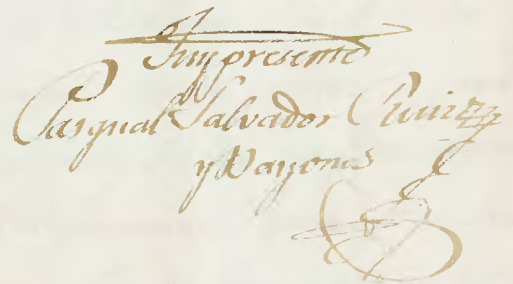 Fuy presente
Pasqual Salvador Ruiz
y Bayonas